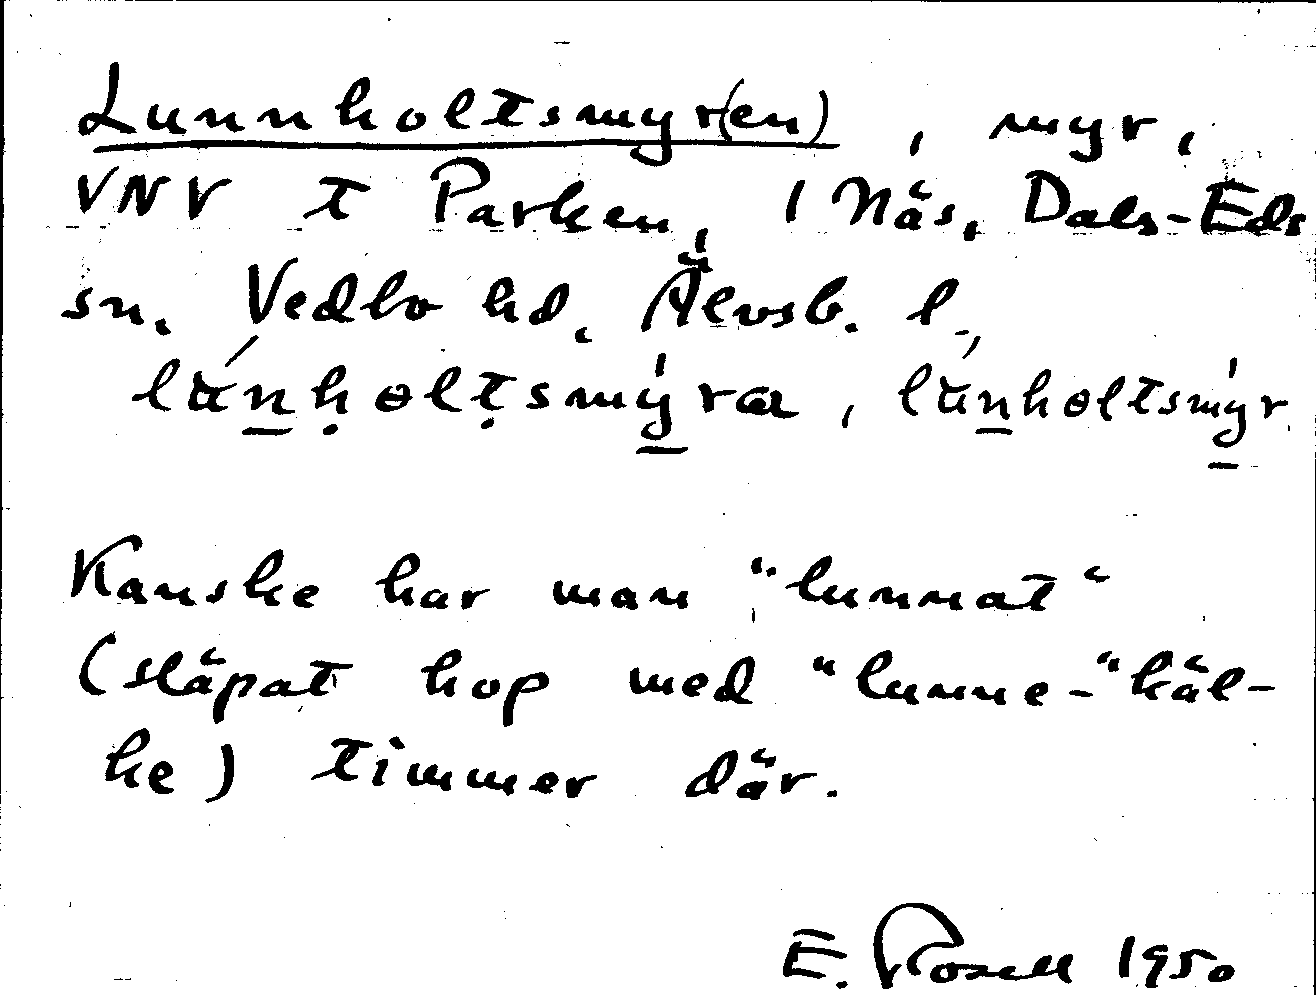 Lunnholtsmyr(en), myr,
VNV t Parken, 1 Näs, Dals-Eds
sn. Vedbo hd. Älvsb. l.
lu̱nḥɵlṭsmy̱ra, lu̱nhɵltsmy̱r
Kanske har man "lunnat"
(släpat hop med "lunne-"käl-
ke) timmer där.
E. Rosell 1950